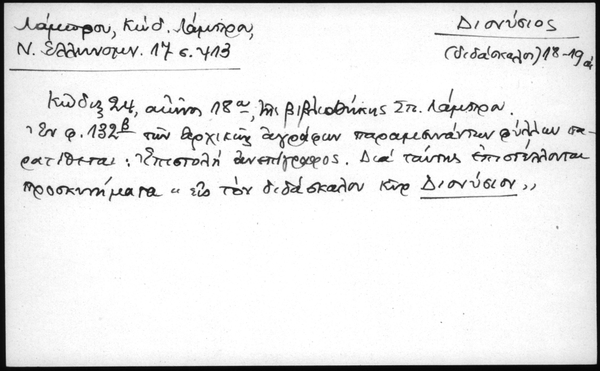 Λάμπρου, Κώδ. Λάμπρου,
Ν. Ελληνομν. 17 σ. 413
Διονύσιος
(διδάσκαλος) 18-19 αἰ
Κώδιξ 24, αἰῶνος 18ου, τῆς βιβλιοθήκης Σπ. Λάμπρου.
Ἐν φ. 132β τῶν ἀρχικῶς ἀγράφων παραμεινάντων φύλλων πα-
ρατίθεται: Ἐπιστολή ἀνεπίγραφος. Διά ταύτης ἐπιστέλλονται
προσκυνήματα "εἰς τὸν διδάσκαλον κύρ Διονύσιον"